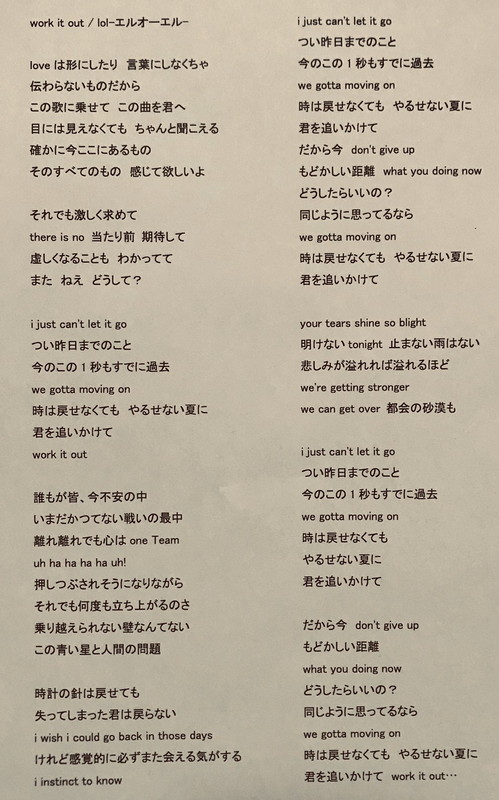 work it out / lol-エルオーエル-
love は形にしたり 言葉にしなくちゃ
伝わらないものだから
この歌に乗せて この曲を君へ
目には見えなくても ちゃんと聞こえる
確かに今ここにあるもの
そのすべてのもの 感じて欲しいよ
それでも激しく求めて
there is no 当たり前 期待して
虚しくなることも わかってて
また ねえ どうして？
i just can't let it go
つい昨日までのこと
今のこの 1 秒もすでに過去
we gotta moving on
時は戻せなくても やるせない夏に
君を追いかけて
work it out
誰もが皆、今不安の中
いまだかつてない戦いの最中
離れ離れでも心は one Team
uh ha ha ha ha uh!
押しつぶされそうになりながら
それでも何度も立ち上がるのさ
乗り越えられない壁なんてない
この青い星と人間の問題
時計の針は戻せても
失ってしまった君は戻らない
i wish i could go back in those days
けれど感覚的に必ずまた会える気がする
i instinct to know
i just can't let it go
つい昨日までのこと
今のこの 1 秒もすでに過去
we gotta moving on
時は戻せなくても やるせない夏に
君を追いかけて
だから今 don't give up
もどかしい距離 what you doing now
どうしたらいいの？
同じように思ってるなら
we gotta moving on
時は戻せなくても やるせない夏に
君を追いかけて
your tears shine so blight
明けない tonight 止まない雨はない
悲しみが溢れれば溢れるほど
we're getting stronger
we can get over 都会の砂漠も
i just can't let it go
つい昨日までのこと
今のこの 1 秒もすでに過去
we gotta moving on
時は戻せなくても
やるせない夏に
君を追いかけて
だから今 don't give up
もどかしい距離
what you doing now
どうしたらいいの？
同じように思ってるなら
we gotta moving on
時は戻せなくても やるせない夏に
君を追いかけて work it out…